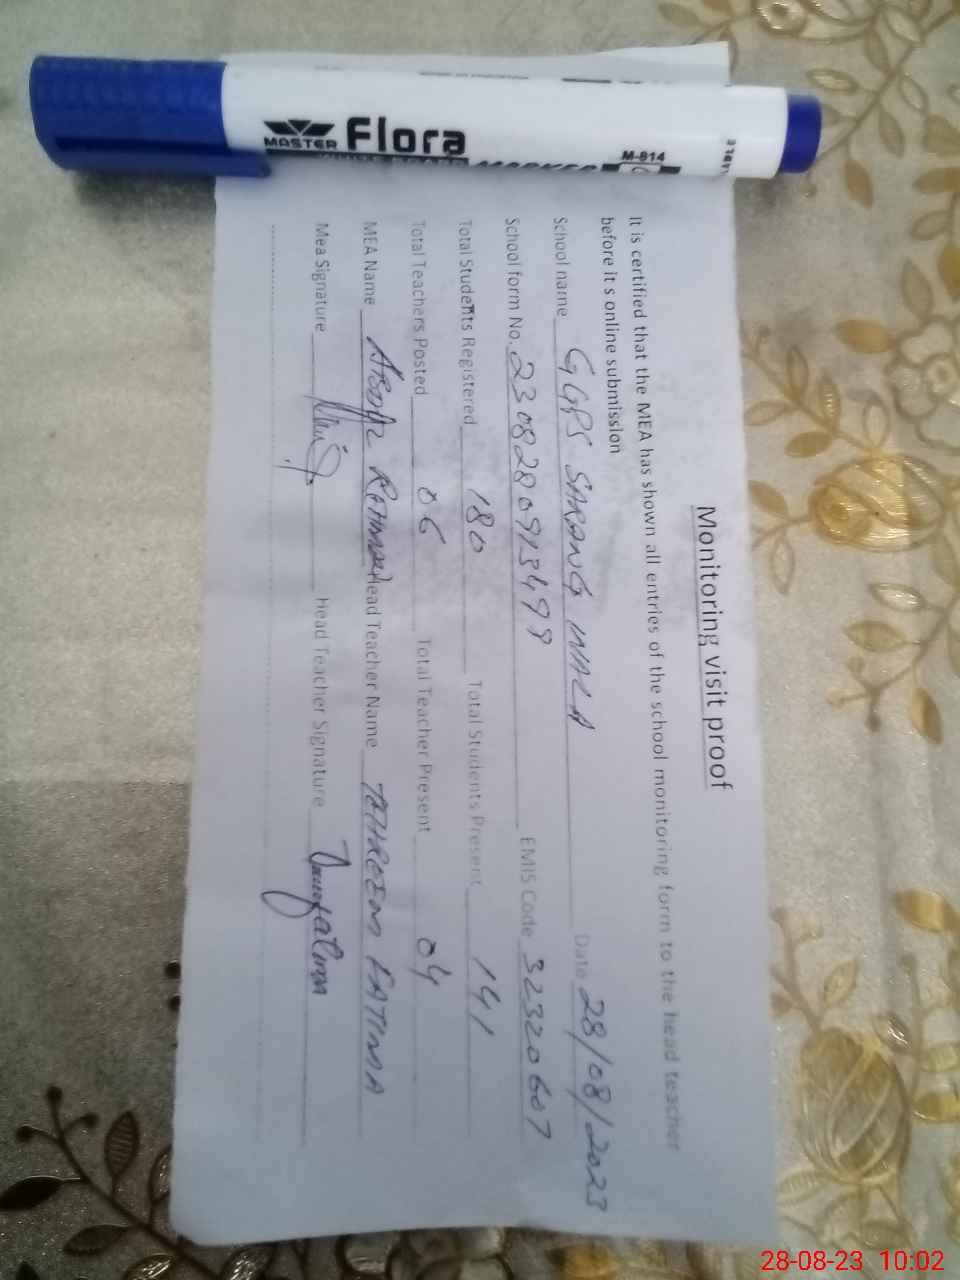 MASTER Flora
M-814
Monitoring visit proof
It is certified that the MEA has shown all entries of the school monitoring form to the head teacher
before it s online submission
School name GGPS SARANG WALA Date 28/08/2023
School form No. EMIS Code 32320607
Total Students Registered 180 Total Students Present 141
Total Teachers Posted 06 Total Teacher Present 04
MEA Name REHMAN Head Teacher Name TEHREEM FATIMA
Mea Signature Head Teacher Signature
28-08-23 10:02